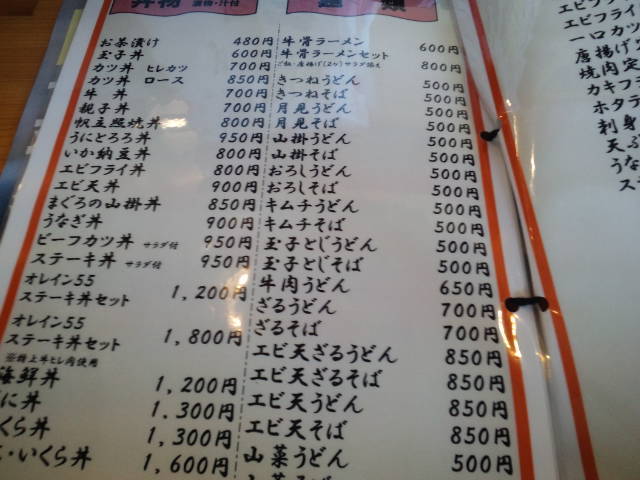 丼物 漬物・汁付
お茶漬け 480円
玉子丼 600円
カツ丼 ヒレカツ 700円
カツ丼 ロース 850円
牛丼 700円
親子丼 700円
帆立照焼丼 800円
うにとろろ丼 950円
いか納豆丼 800円
エビフライ丼 800円
エビ天丼 900円
まぐろの山掛丼 850円
うなぎ丼 900円
ビーフカツ丼 サラダ付 950円
ステーキ丼 サラダ付 950円
オレイン55
ステーキ丼セット 1,200円
オレイン55
ステーキ丼セット 1,800円
※特上牛ヒレ肉使用
海鮮丼 1,200円
に丼 1,300円
くら丼 1,300円
・いくら丼 1,600円
麺類
牛骨ラーメン 600円
牛骨ラーメンセット
ご飯・唐揚げ(2ケ)サラダ揃え 800円
きつねうどん 500円
きつねそば 500円
月見うどん 500円
月見そば 500円
山掛うどん 500円
山掛そば 500円
おろしうどん 500円
おろしそば 500円
キムチうどん 500円
キムチそば 500円
玉子とじうどん 500円
玉子とじそば 500円
牛肉うどん 650円
ざるうどん 700円
ざるそば 700円
エビ天ざるうどん 850円
エビ天ざるそば 850円
エビ天うどん 850円
エビ天そば 850円
山菜うどん 500円
エビフラ
エビフライ
一口カツ
唐揚げ
焼肉定
カキフ
ホタラ
刺身
天ぷ
うな
ス